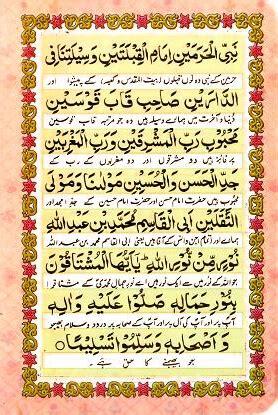 نَبِيِّ الْحَرَمَيْنِ اِمَامِ الْقِبْلَتَيْنِ وَسِيْلَتِنَا فِى
حرمین کے نبی دونوں قبلوں (بیت المقدس و کعبہ) کے پیشوا اور
الدَّارَيْنِ صَاحِبِ قَابَ قَوْسَيْنِ
دنیا و آخرت میں ہمارے وسیلہ ہیں وہ جو مرتبہ قاب قوسین
مَحْبُوْبِ رَبِّ الْمَشْرِقَيْنِ وَرَبِّ الْمَغْرِبَيْنِ
پر فائز ہیں دو مشرقوں اور دو مغربوں کے رب کے
جَدِّ الْحَسَنِ وَالْحُسَيْنِ مَوْلٰنَا وَمَوْلَى
محبوب ہیں حضرت امام حسن اور حضرت امام حسین کے جد امجد اور
الثَّقَلَيْنِ اَبِى الْقَاسِمِ مُحَمَّدِ بْنِ عَبْدِ اللّٰهِ
ہمارے اور تمام جن و انس کے آقا ہیں یعنی ابی القاسم محمد بن عبد اللہ
نُوْرٍ مِّنْ نُّوْرِ اللّٰهِ ط يٰۤاَيُّهَا الْمُشْتَاقُوْنَ
جو اللہ کے نور میں سے ایک نور ہیں اے نور جمال محمدی کے مشتاقو
بِنُوْرِ جَمَالِهٖ صَلُّوْا عَلَيْهِ وَاٰلِهٖ
آپ پر اور آپ کی آل پر اور آپ کے صحابہ پر درود و سلام بھیجو
وَاَصْحَابِهٖ وَسَلِّمُوْا تَسْلِيْمًا
جو بھیجنے کا حق ہے۔